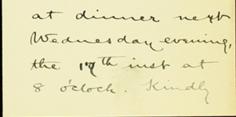 at dinner next
Wednesday evening,
the 17th inst at
8 o'clock. Kindly